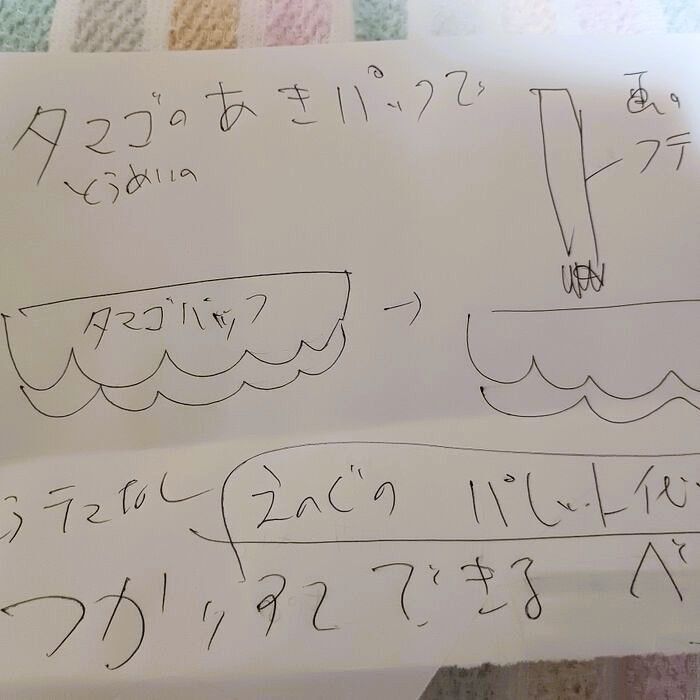 タマゴのあきパックで
とうめいの
画の
フデ
タマゴパック
→
えのぐの パレット代
つかいすてできる